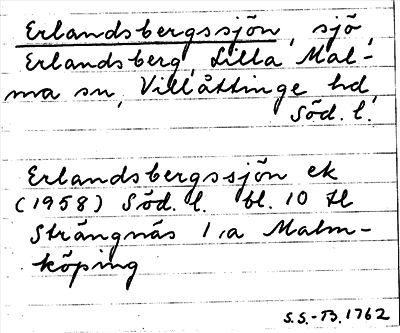 Erlandsbergssjön, sjö,
Erlandsberg, Lilla Mal-
ma sn, Villåttinge hd,
Söd. l.
Erlandsbergssjön ek
(1958) Söd. l. bl. 10 tl
Strängnäs 1:a Malm-
köping
S.S.-B. 1762